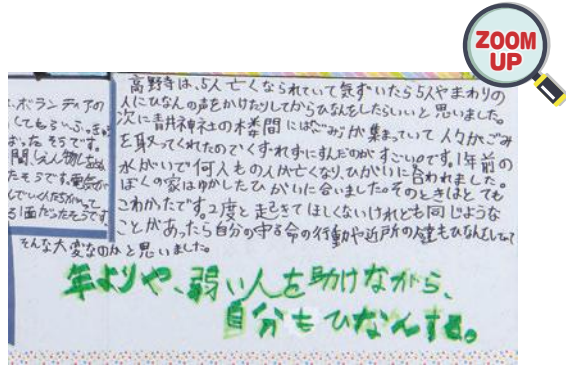 ZOOM
UP
ボランティアの
してもらい
ったそうです。
たそうです。電気が
る1面だったそうです
高野寺は、5人亡くなられていて気ずいたら5人やまわりの
人にひなんの声をかけたりしてからひなんをしたらいいと思いました。
次に青井神社の楼間にはごみが集まっていて人々がごみ
を取ってくれたのでくずれずにすんだのがすごいのです。1年前の
水がいで何人もの人が亡くなり、ひがいに合われました。
ぼくの家はゆかしたひがいに合いました。そのときはとても
こわかったです。2度と起きてほしくないけれども同じような
ことがあったら自分の守る命の行動や近所の人達もひなん
そんな大変なのかと思いました。
年よりや、弱い人を助けながら、
自分もひなんする。